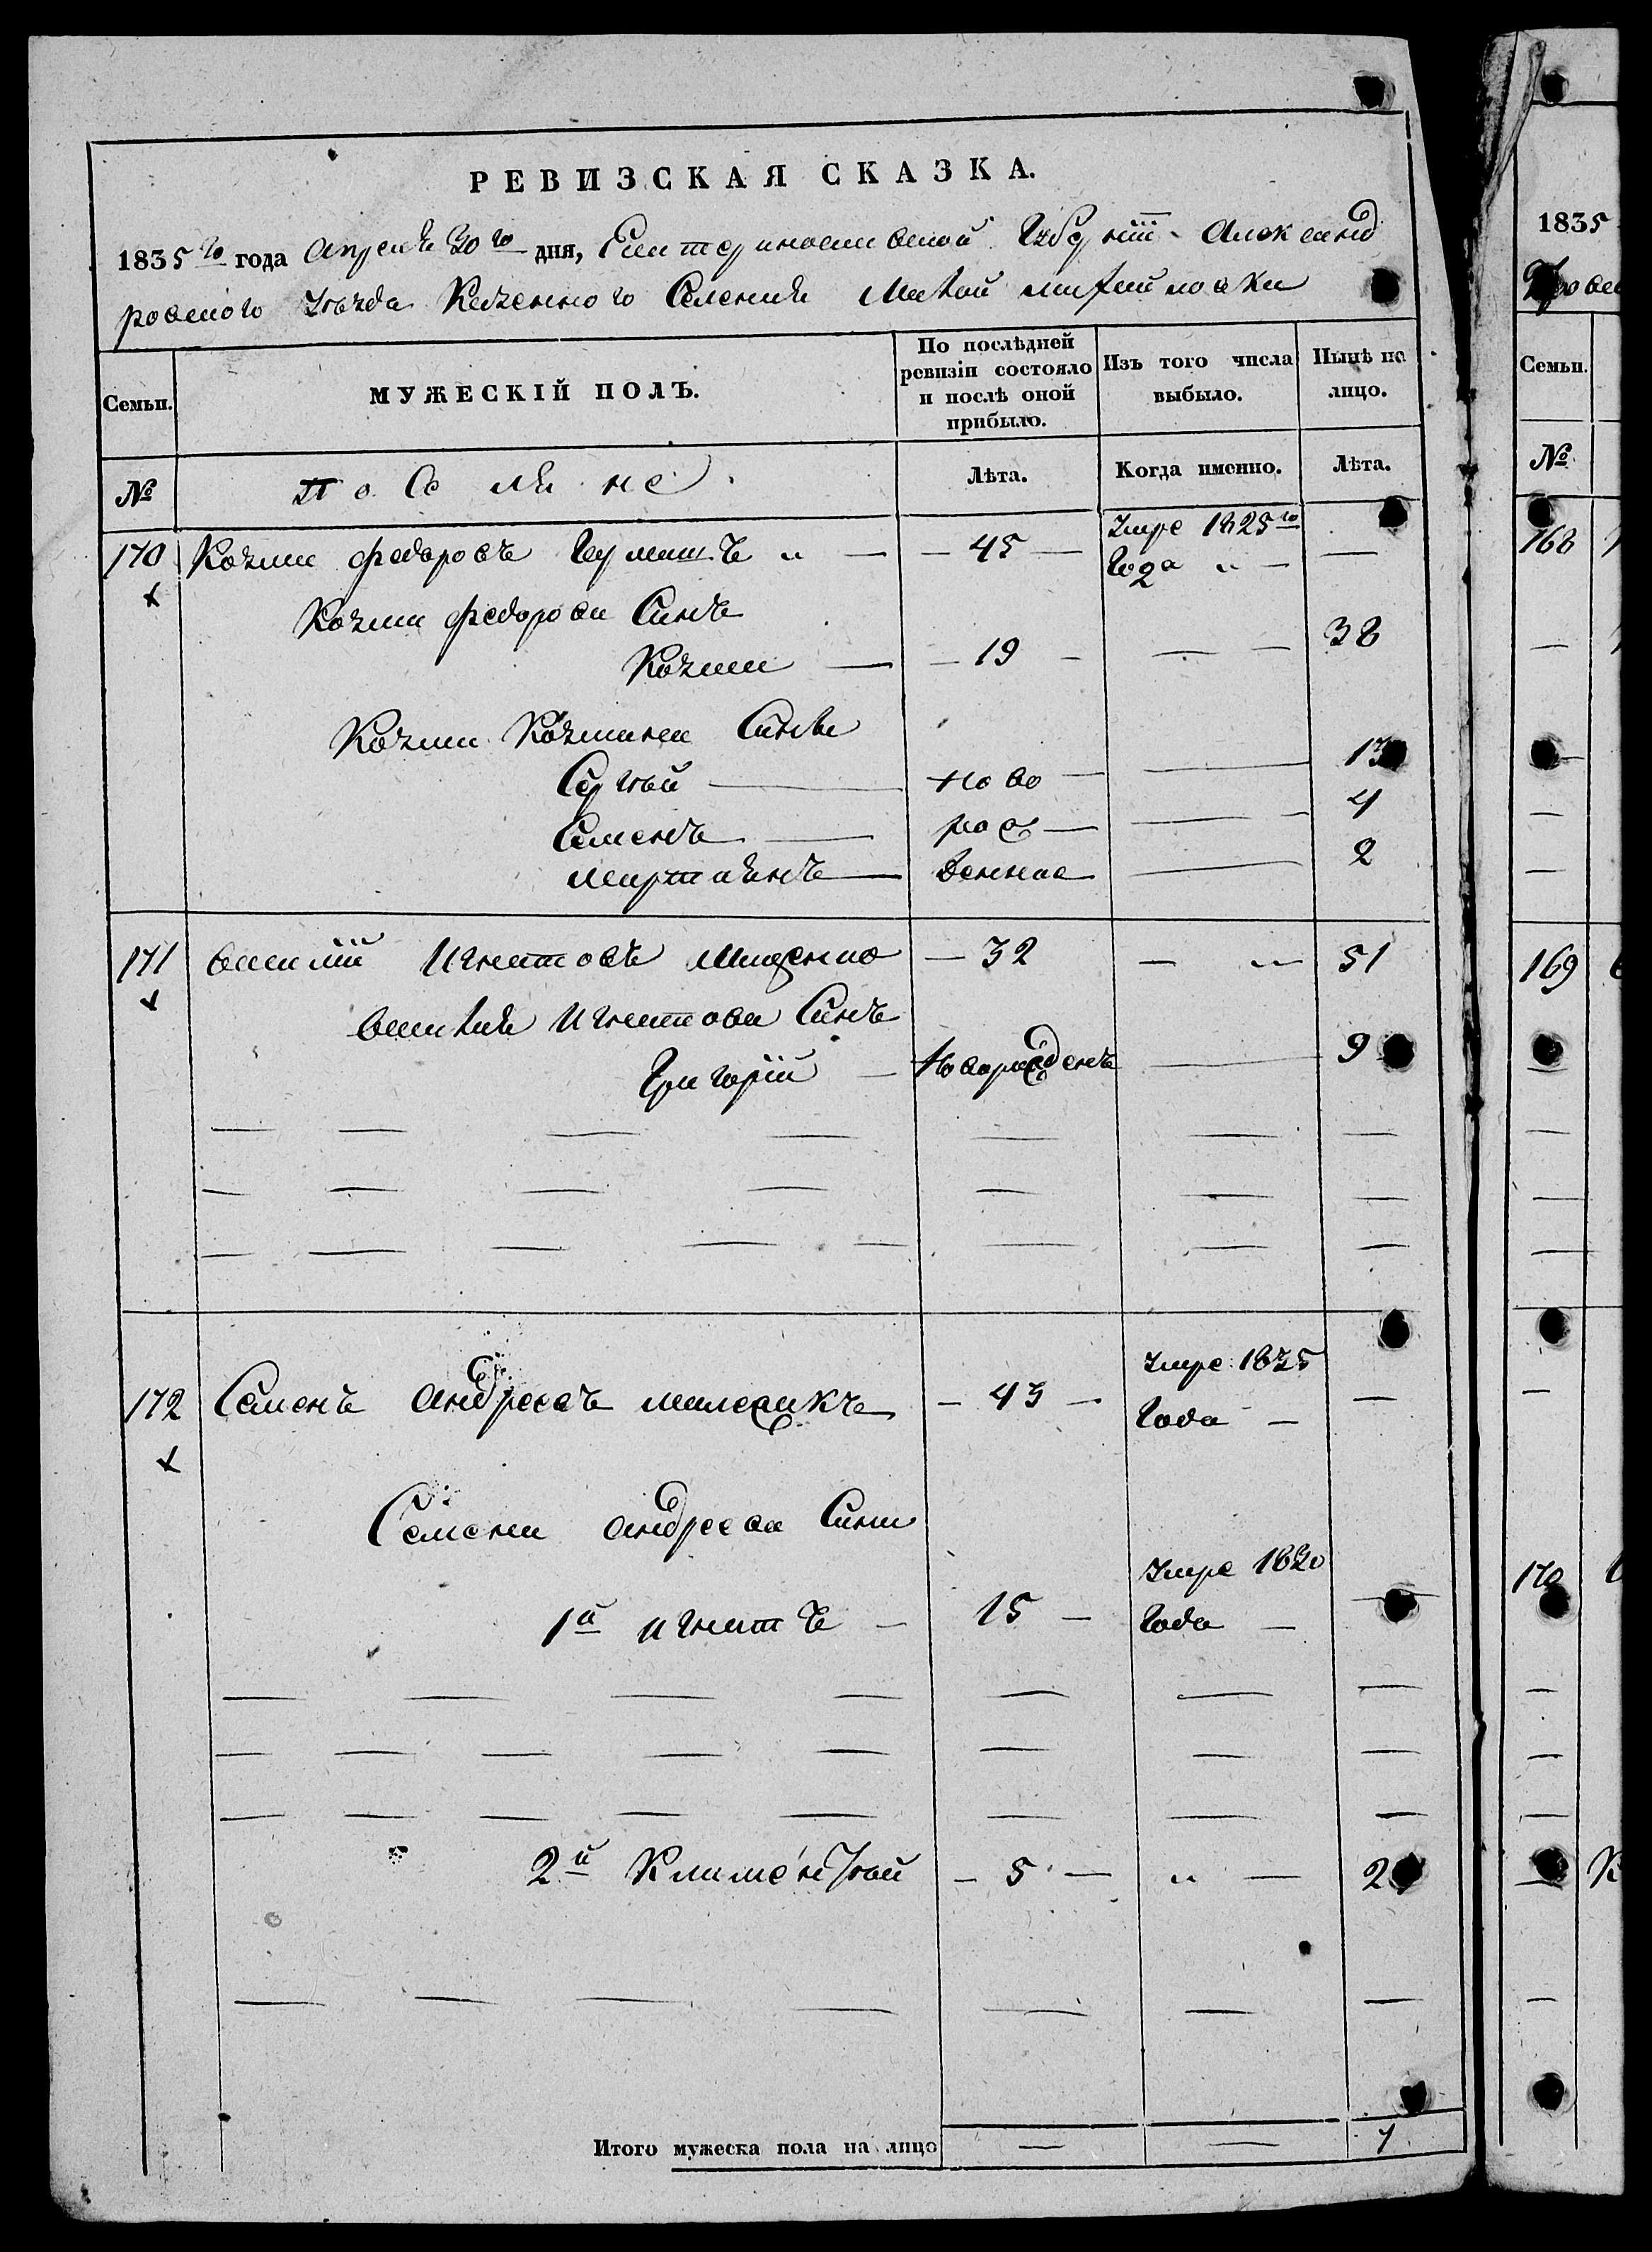 РЕВИЗСКАЯ СКАЗКА.
1835 го года Апреля 30 го дня, Екатеринославской Губернiи Александ
ровского Уѣзда Казенного Селения Малой Михайловки
Семьи. МУЖЕСКІЙ ПОЛЪ. По послѣдней ревизіи состояло и послѣ оной прибыло. Изъ того числа выбыло. Нынѣ на лицо.
№ Поселяне Лѣта. Когда именно. Лѣта.
170 Козма Федоровъ — 45 — Умре 1825 го
Года —
Козми Федорова Синъ
Козма — 19 — — 38
Козми Козмина Сини
Сергѣй — Ново — — 13
Семенъ — рож — — 4
Мартинъ — денние — 2
171 Василiй Игнатовъ Мищенко — 32 — 51
Василия Игнатова Синъ
Григорiй — Новорожденъ — 9
172 Семенъ Андреевъ — 43 — Умре 1835
Года —
Семена Андреева Сини
1й Игнатъ — 15 — Умре 1830
Года —
2й Климентiй — 5 — — 2
Итого мужеска пола на лицо — — 7
1835
Семьи.
№
168
169
170